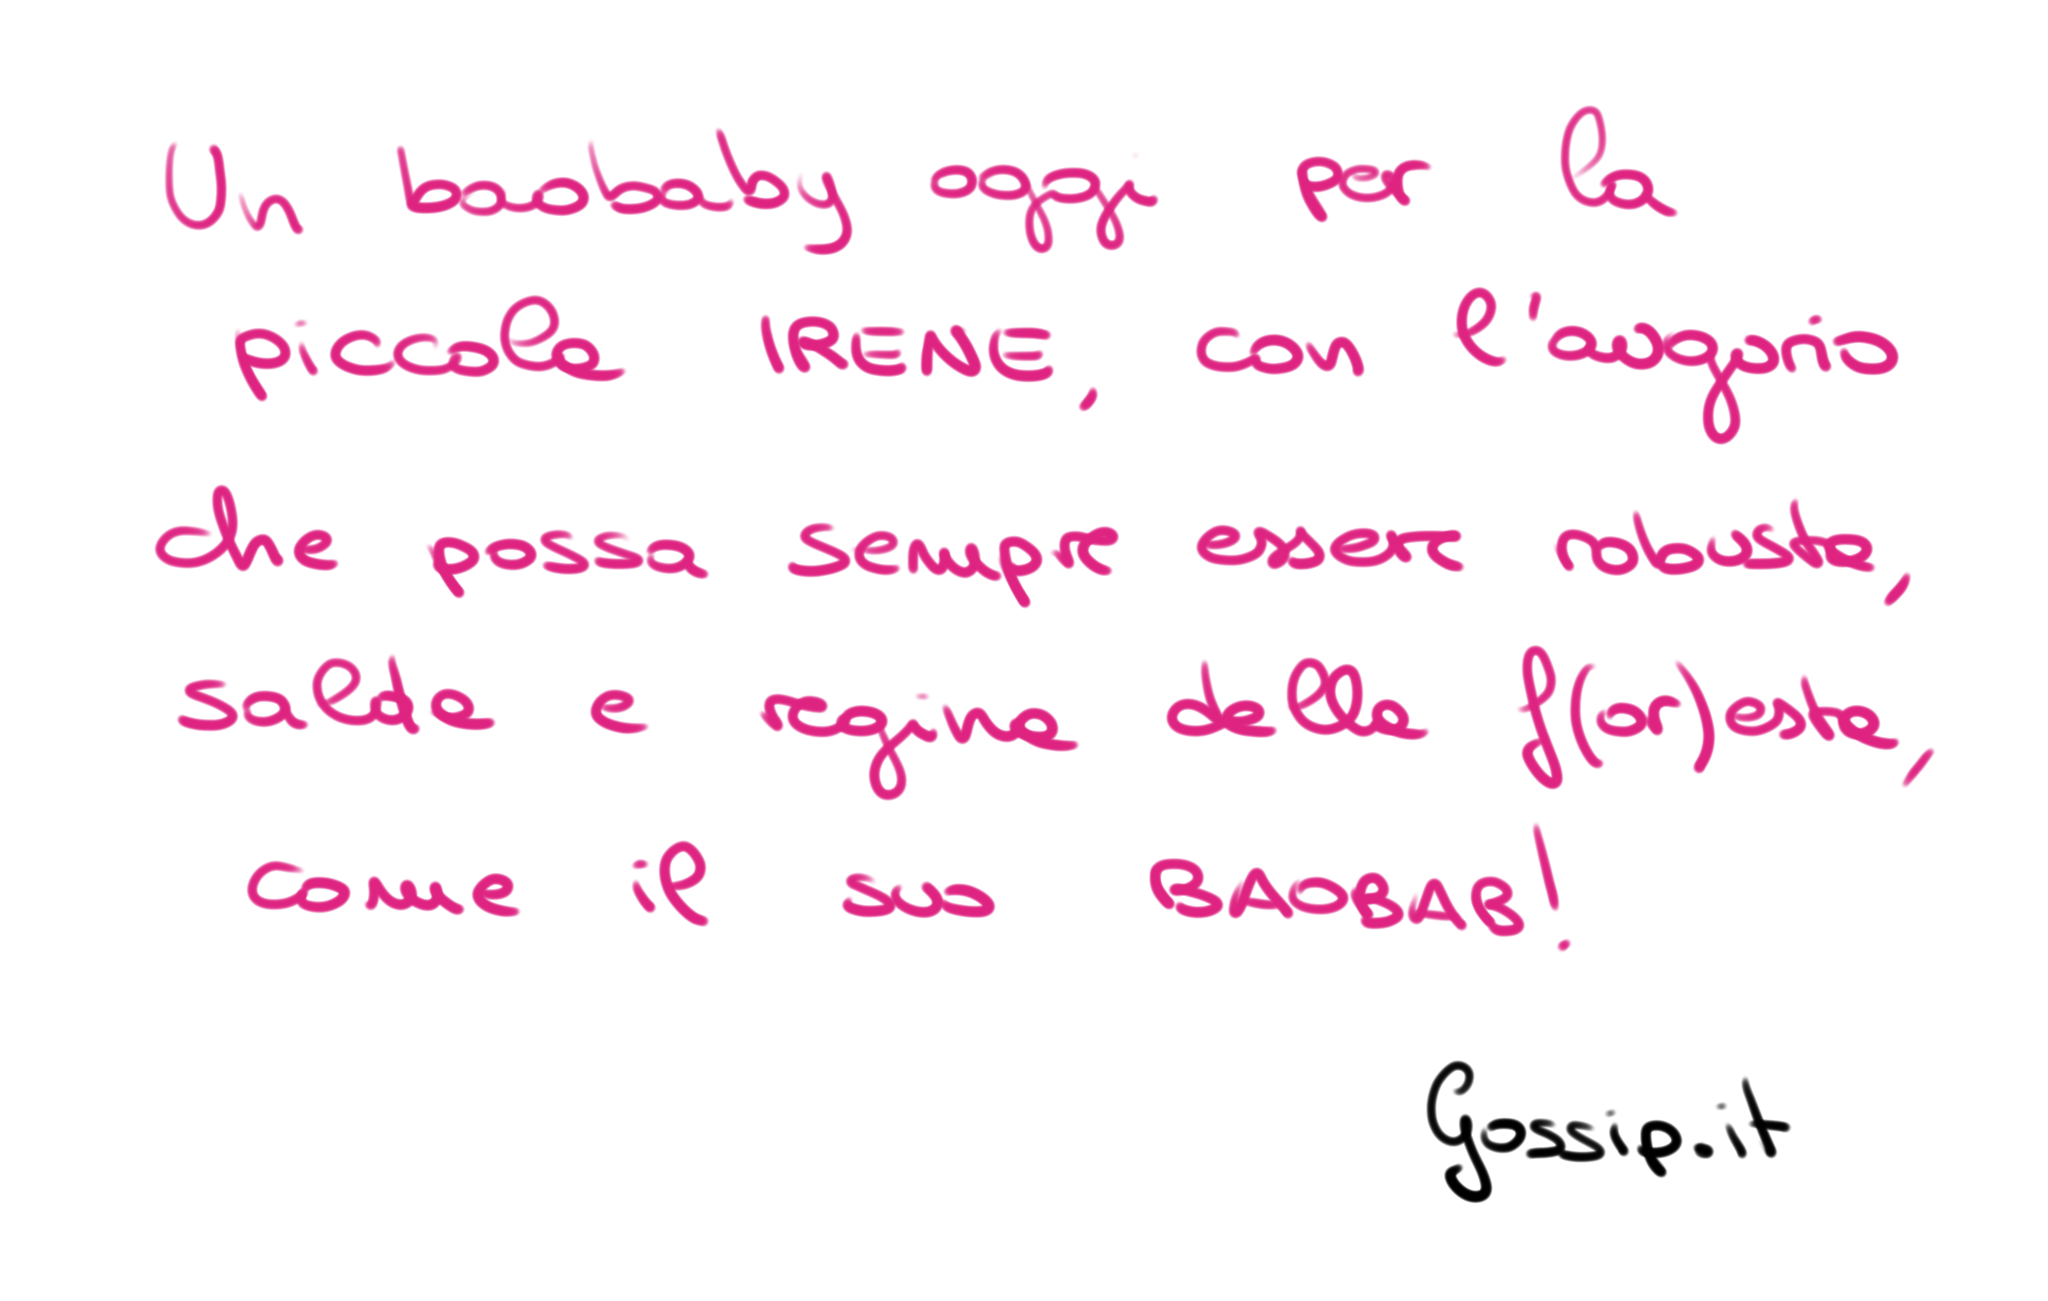 Un baobaby oggi per la
piccola IRENE, con l'augurio
che possa sempre essere robusta,
salda e regina della f(or)esta,
come il suo BAOBAB!
Gossip.it